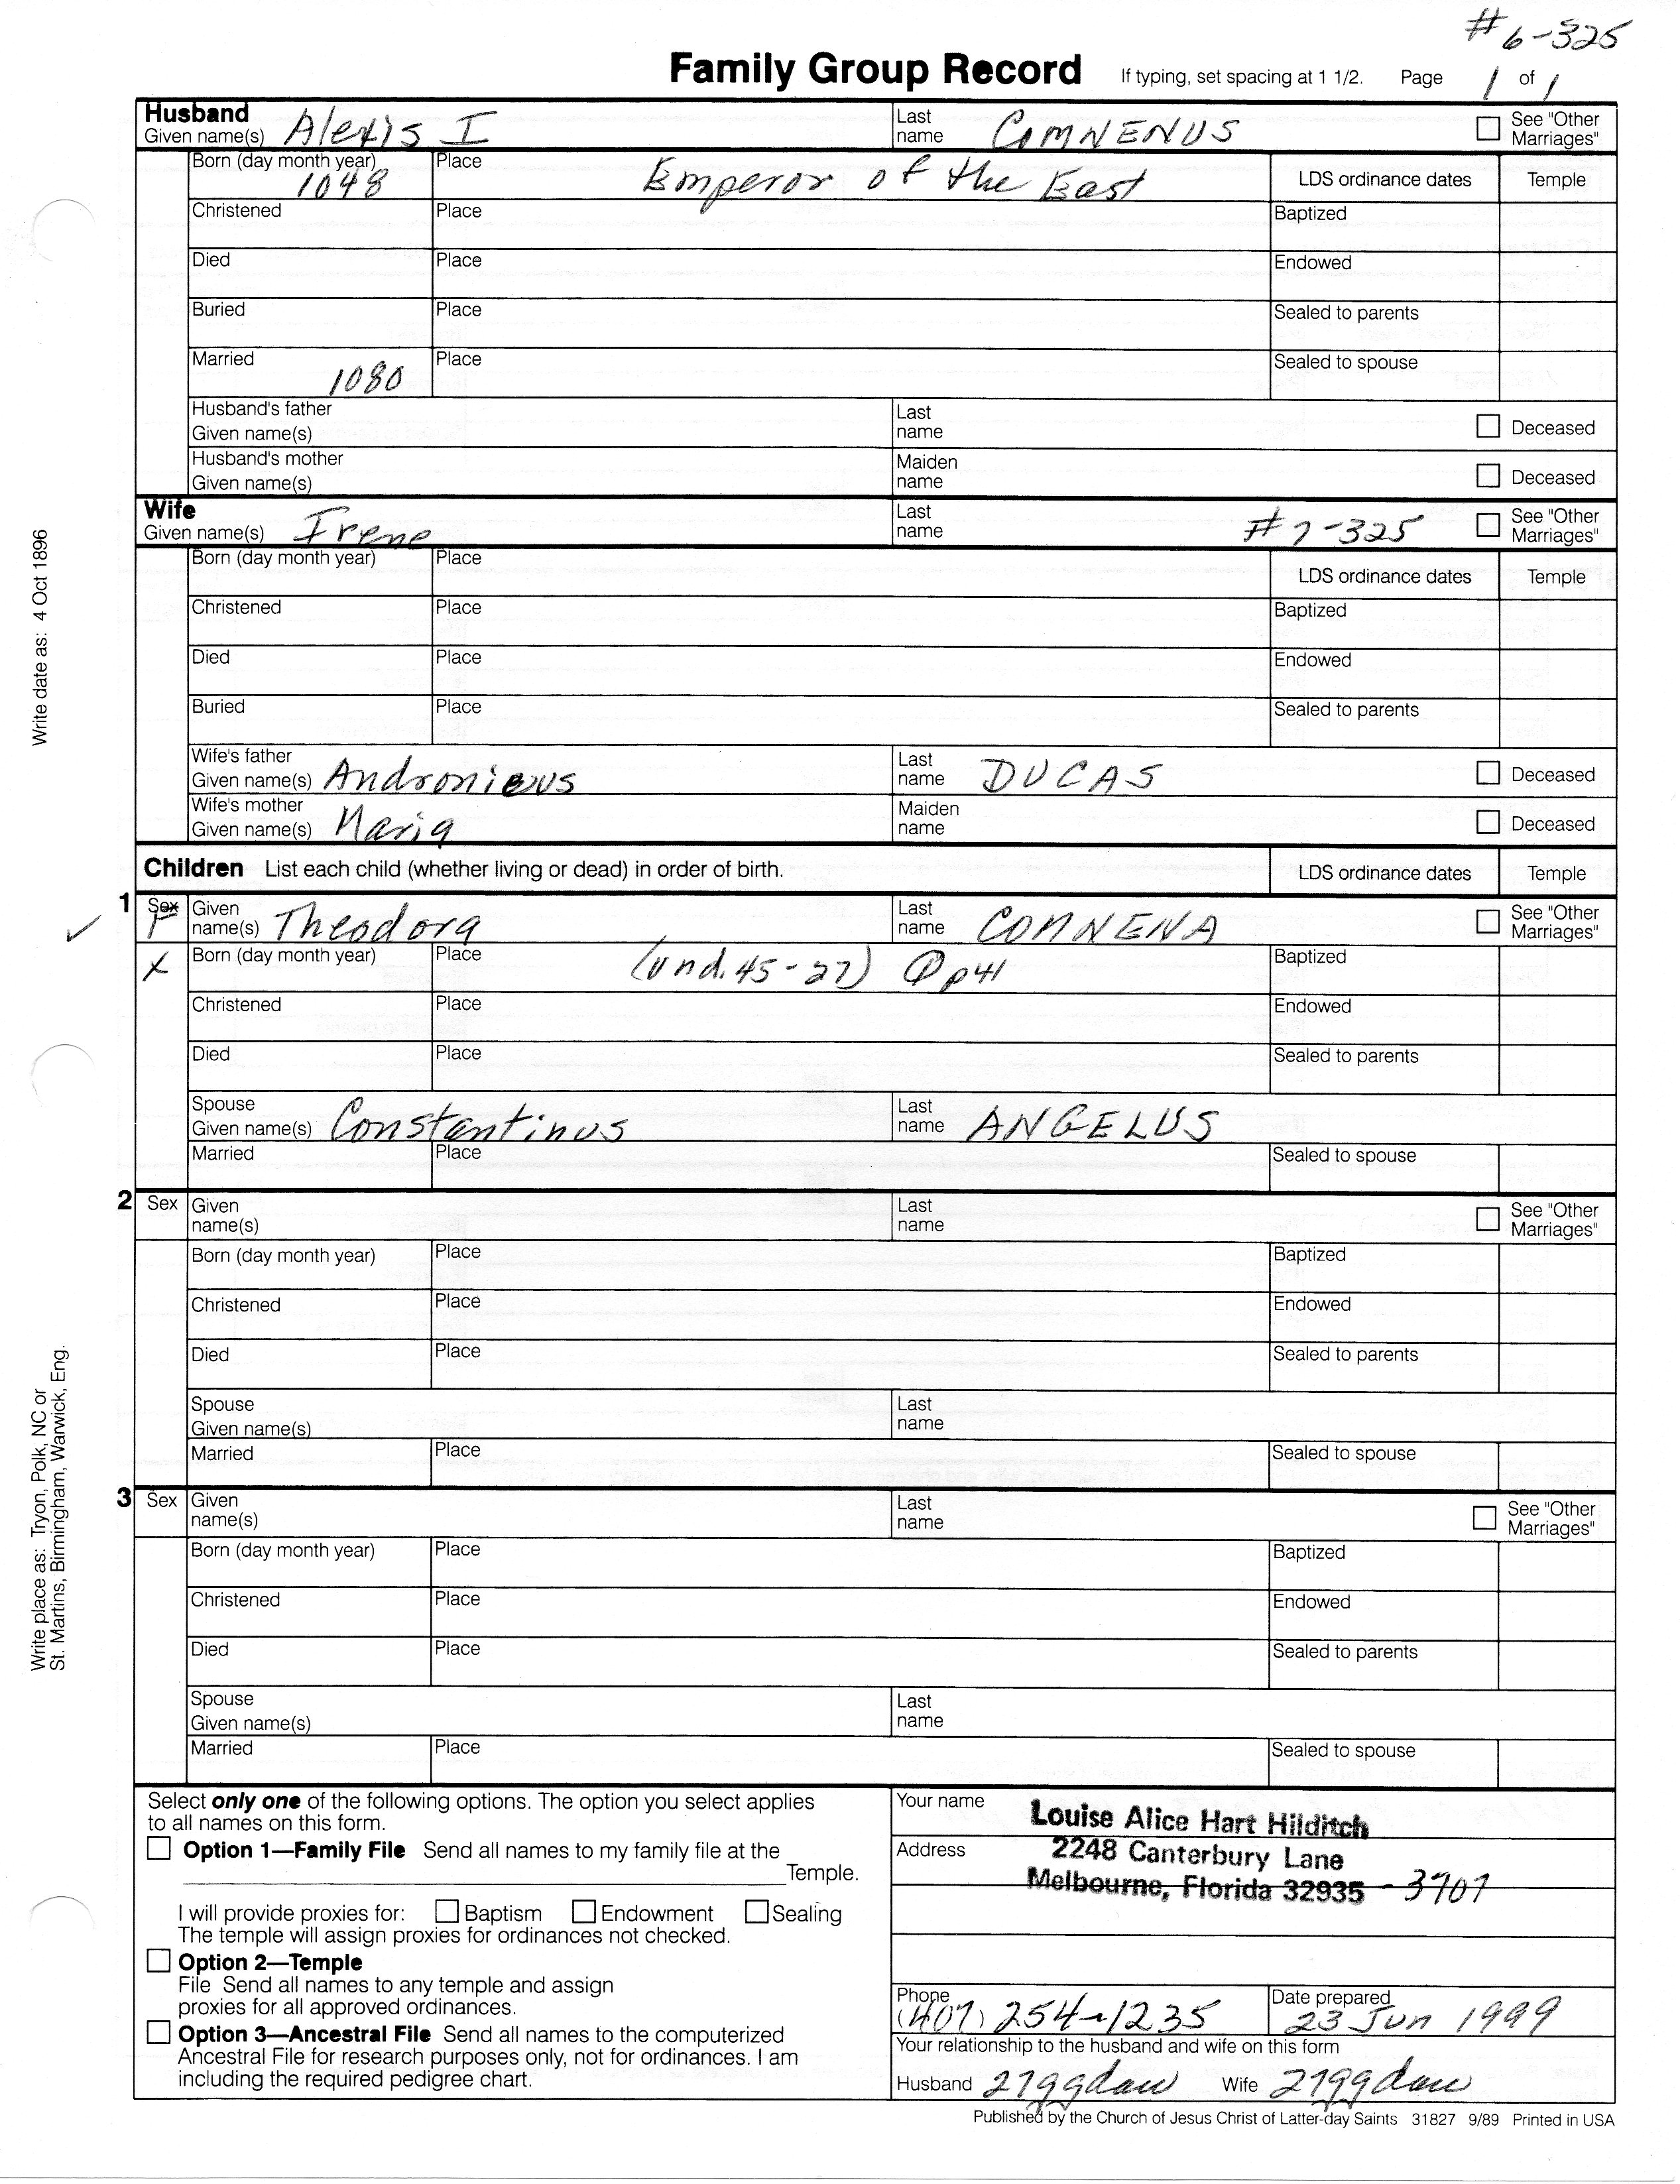 # 6-325
Family Group Record If typing, set spacing at 1 1/2. Page 1 of 1
Husband
Given name(s) Alexis I Last name COMNENUS See "Other Marriages"
Born (day month year) 1048 Place Emperor of the East LDS ordinance dates Temple
Christened Place Baptized
Died Place Endowed
Buried Place Sealed to parents
Married 1080 Place Sealed to spouse
Husband's father
Given name(s) Last name Deceased
Husband's mother
Given name(s) Maiden name Deceased
Wife
Given name(s) Irene Last name # 7-325 See "Other Marriages"
Born (day month year) Place LDS ordinance dates Temple
Christened Place Baptized
Died Place Endowed
Buried Place Sealed to parents
Wife's father
Given name(s) Andronicus Last name DUCAS Deceased
Wife's mother
Given name(s) Maria Maiden name Deceased
Children List each child (whether living or dead) in order of birth. LDS ordinance dates Temple
1 Sex F Given name(s) Theodora Last name COMNENA See "Other Marriages"
X Born (day month year) Place (und. 45-27) p41 Baptized
Christened Place Endowed
Died Place Sealed to parents
Spouse
Given name(s) Constantinus Last name ANGELUS
Married Place Sealed to spouse
2 Sex Given name(s) Last name See "Other Marriages"
Born (day month year) Place Baptized
Christened Place Endowed
Died Place Sealed to parents
Spouse
Given name(s) Last name
Married Place Sealed to spouse
3 Sex Given name(s) Last name See "Other Marriages"
Born (day month year) Place Baptized
Christened Place Endowed
Died Place Sealed to parents
Spouse
Given name(s) Last name
Married Place Sealed to spouse
Select only one of the following options. The option you select applies
to all names on this form.
Option 1—Family File Send all names to my family file at the
Temple.
I will provide proxies for: Baptism Endowment Sealing
The temple will assign proxies for ordinances not checked.
Option 2—Temple
File Send all names to any temple and assign
proxies for all approved ordinances.
Option 3—Ancestral File Send all names to the computerized
Ancestral File for research purposes only, not for ordinances. I am
including the required pedigree chart.
Your name Louise Alice Hart Hilditch
Address 2248 Canterbury Lane
Melbourne, Florida 32935 - 3707
Phone (407) 254-1235 Date prepared 23 Jun 1999
Your relationship to the husband and wife on this form
Husband 27ggdau Wife 27ggdau
Published by the Church of Jesus Christ of Latter-day Saints 31827 9/89 Printed in USA
Write date as: 4 Oct 1896
Write place as: Tryon, Polk, NC or
St. Martins, Birmingham, Warwick, Eng.